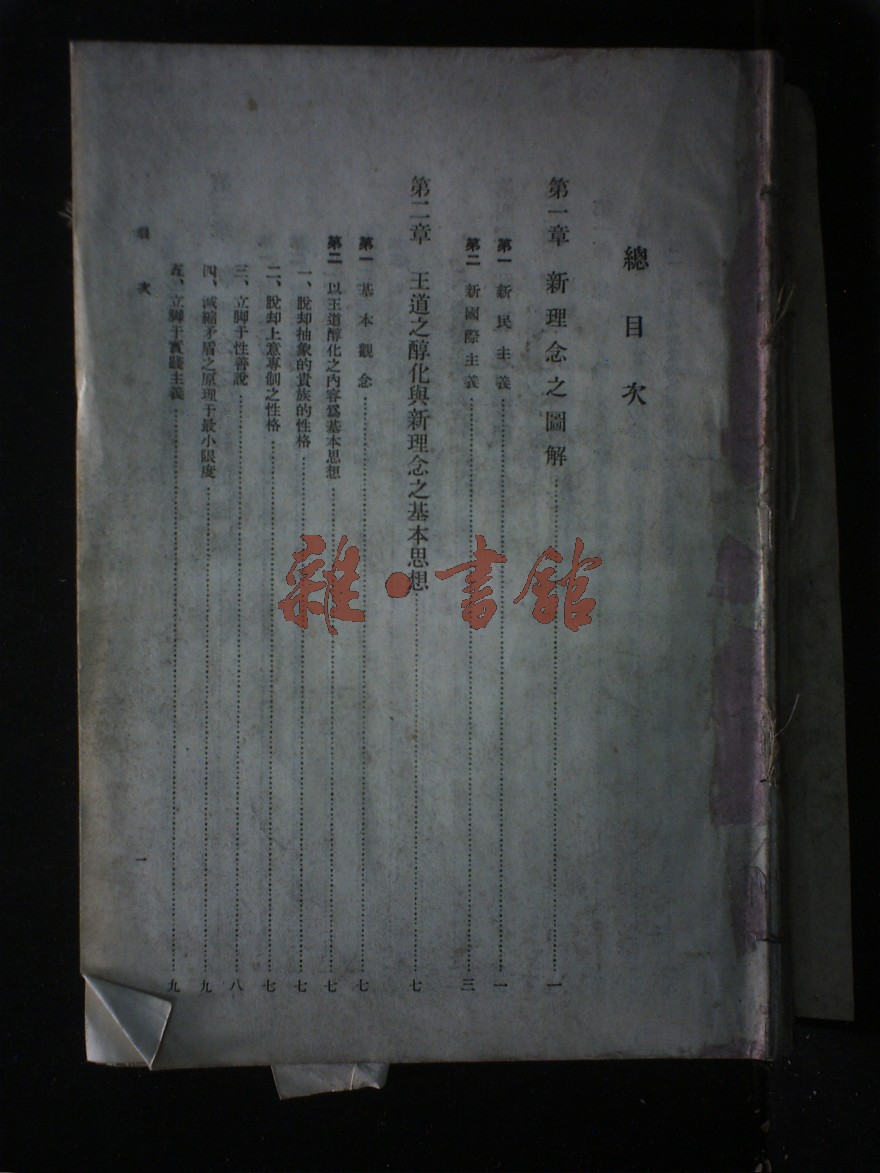 總目次
第一章 新理念之圖解…………一
第一 新民主義…………一
第二 新國際主義…………三
第二章 王道之醇化與新理念之基本思想…………七
第一 基本觀念…………七
第二 以王道醇化之內容爲基本思想…………七
一、脫却抽象的貴族的性格…………七
二、脫却上意專制之性格…………七
三、立脚于性善說…………八
四、減縮矛盾之原理于最小限度…………九
五、立脚于實踐主義…………九
目次
一
雜·書館